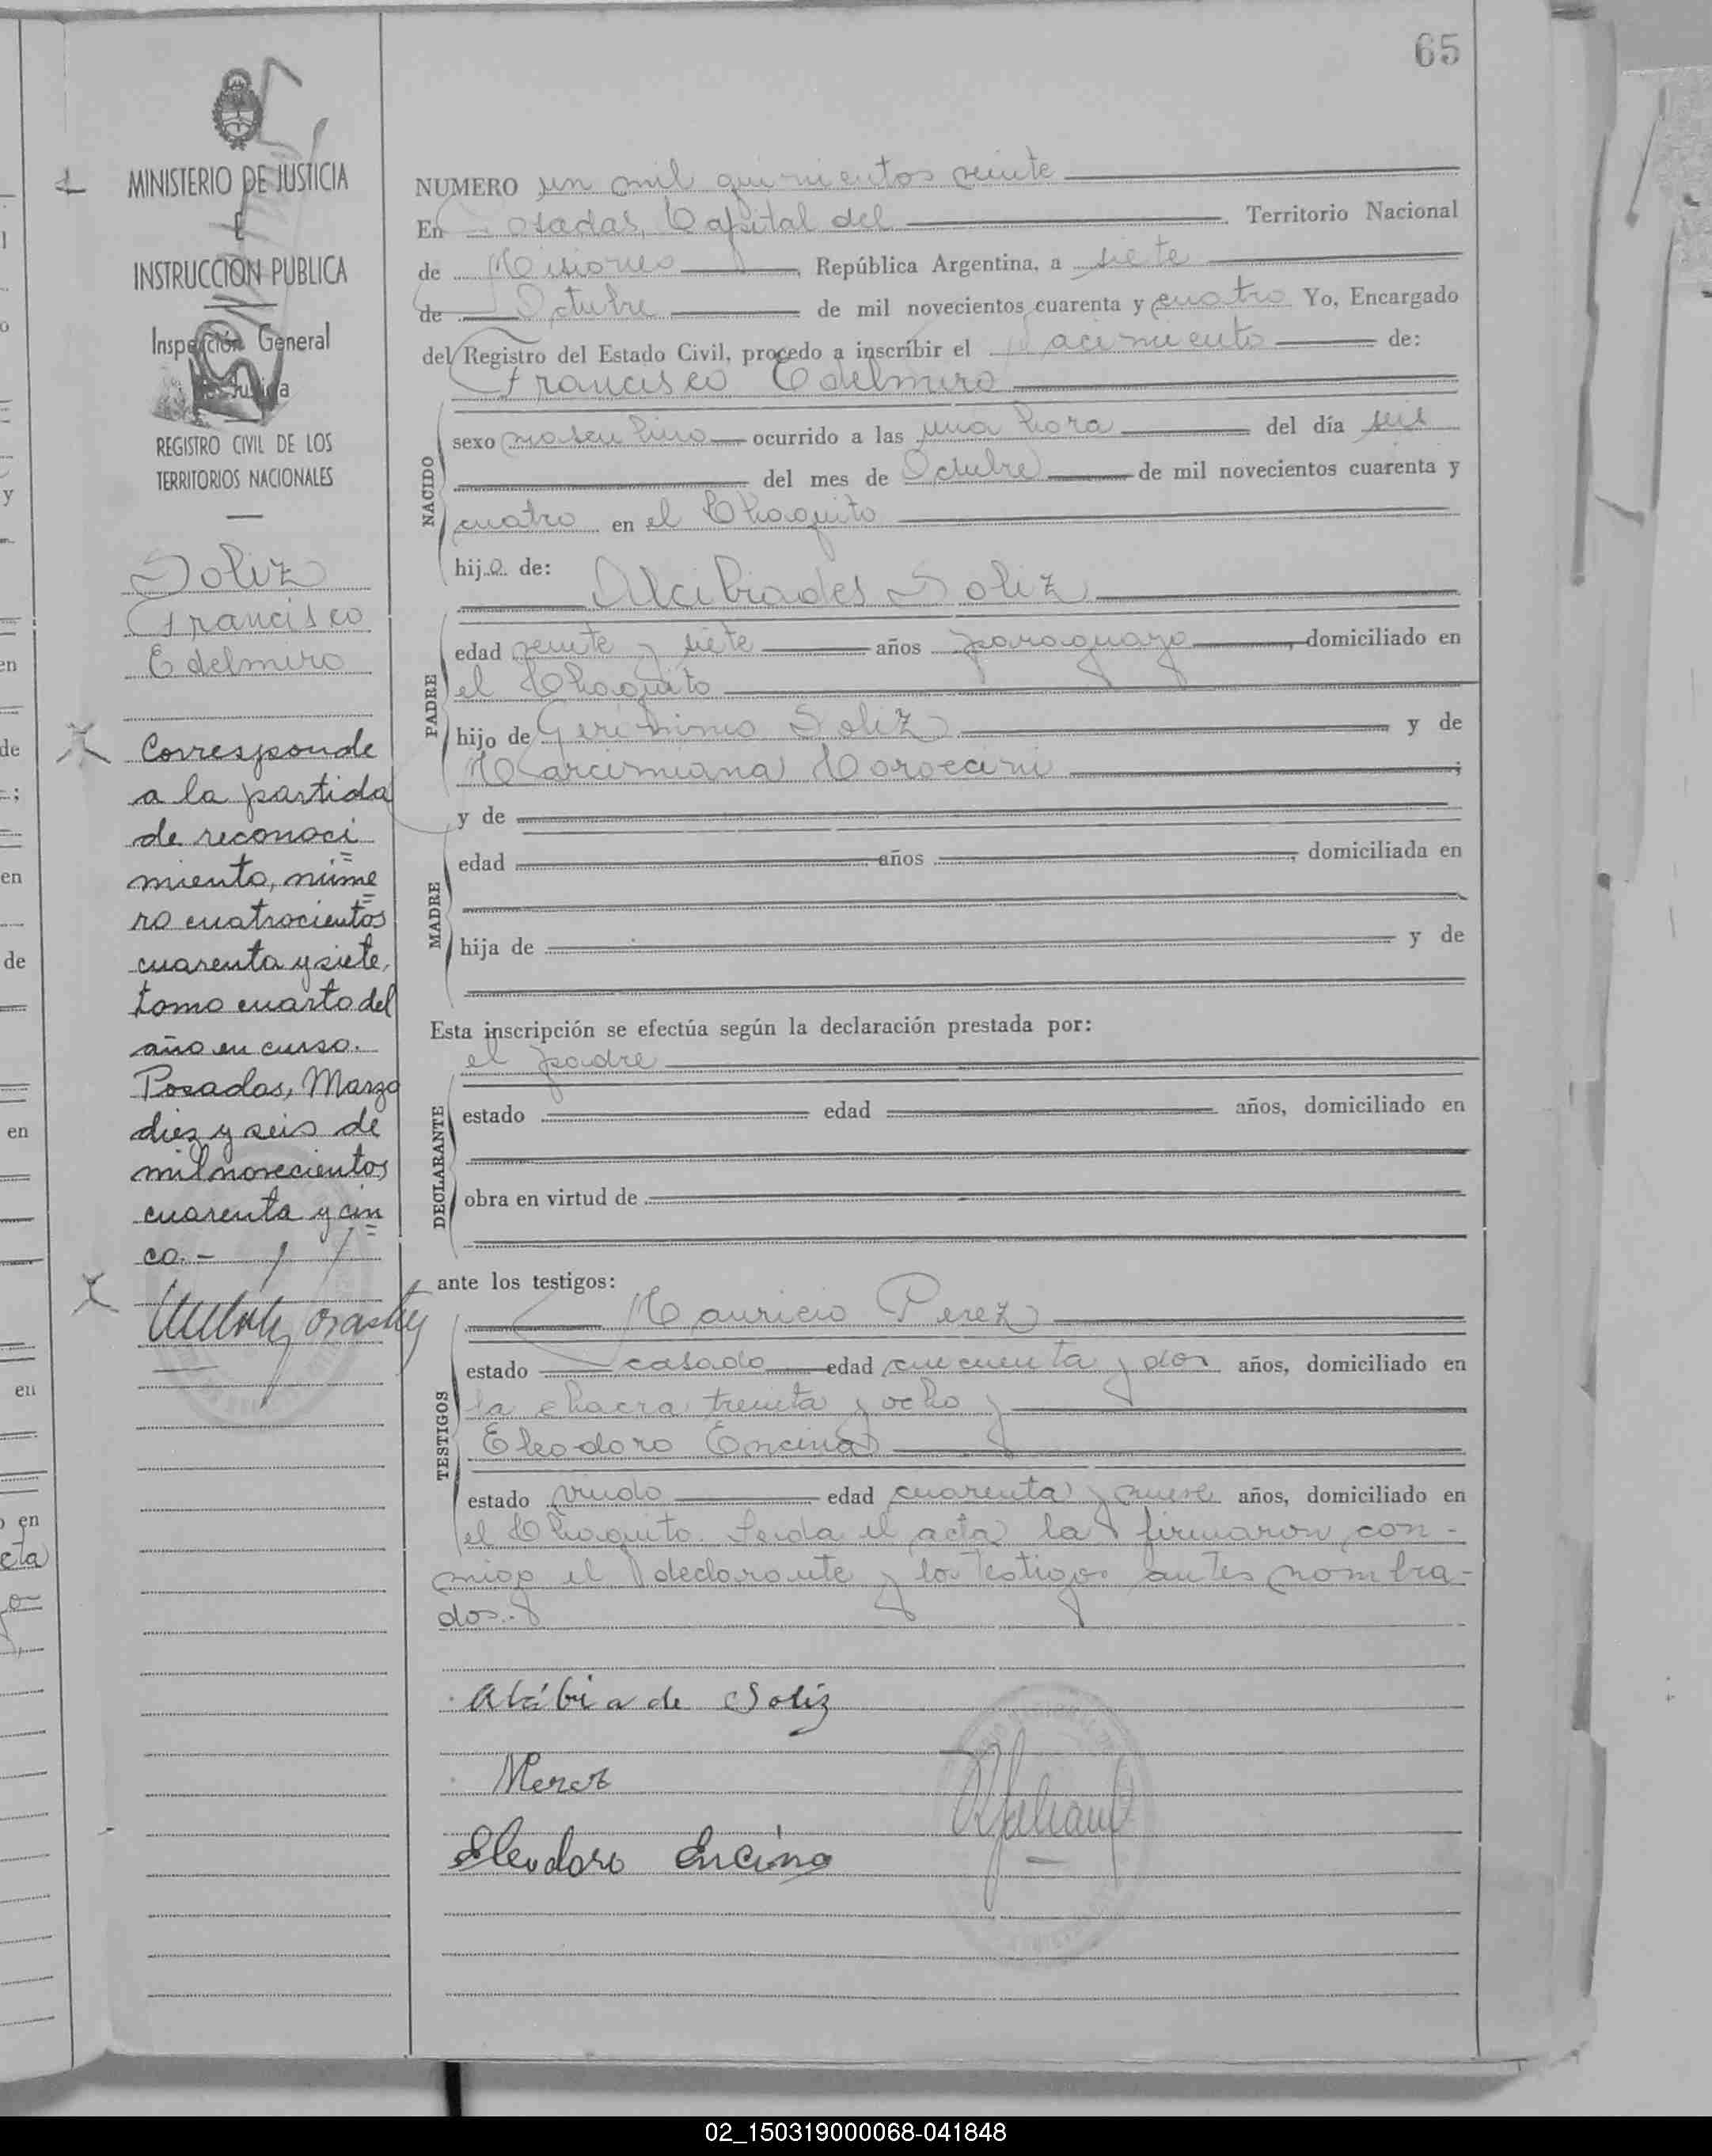 65
MINISTERIO DE JUSTICIA
E
INSTRUCCION PUBLICA
Inspección General
de Justicia
REGISTRO CIVIL DE LOS
TERRITORIOS NACIONALES
Soliz
Francisco
Edelmiro
Corresponde
a la partida
de reconoci
miento, núme
ro cuatrocientos
cuarenta y siete,
tomo cuarto del
año en curso.
Posadas, Marzo
diez y seis de
mil novecientos
cuarenta y cin
co.-
NUMERO un mil quinientos veinte
En Posadas, Capital del Territorio Nacional
de Misiones, República Argentina, a siete
de Octubre de mil novecientos cuarenta y cuatro Yo, Encargado
del Registro del Estado Civil, procedo a inscribir el Nacimiento de:
Francisco Edelmiro
NACIDO
sexo masculino ocurrido a las una hora del día seis
del mes de Octubre de mil novecientos cuarenta y
cuatro en el Chaquito
hijo de:
Alcibiades Soliz
PADRE
edad veinte y siete años paraguayo, domiciliado en
el Chaquito
hijo de Gerónimo Soliz y de
Marcimiana ;
y de
MADRE
edad años , domiciliada en
hija de y de
Esta inscripción se efectúa según la declaración prestada por:
el padre
DECLARANTE
estado edad años, domiciliado en
obra en virtud de
ante los testigos:
Mauricio Perez
TESTIGOS
estado casado edad cincuenta y dos años, domiciliado en
la chacra treinta y ocho y
Eleodoro Encina
estado viudo edad cuarenta y nueve años, domiciliado en
el Chaquito. Leida el acta la firmaron con-
migo el declarante y los testigos antes nombra-
dos.
Alcibiade Soliz
MPerez
Eleodoro Encina
02_150319000068-041848